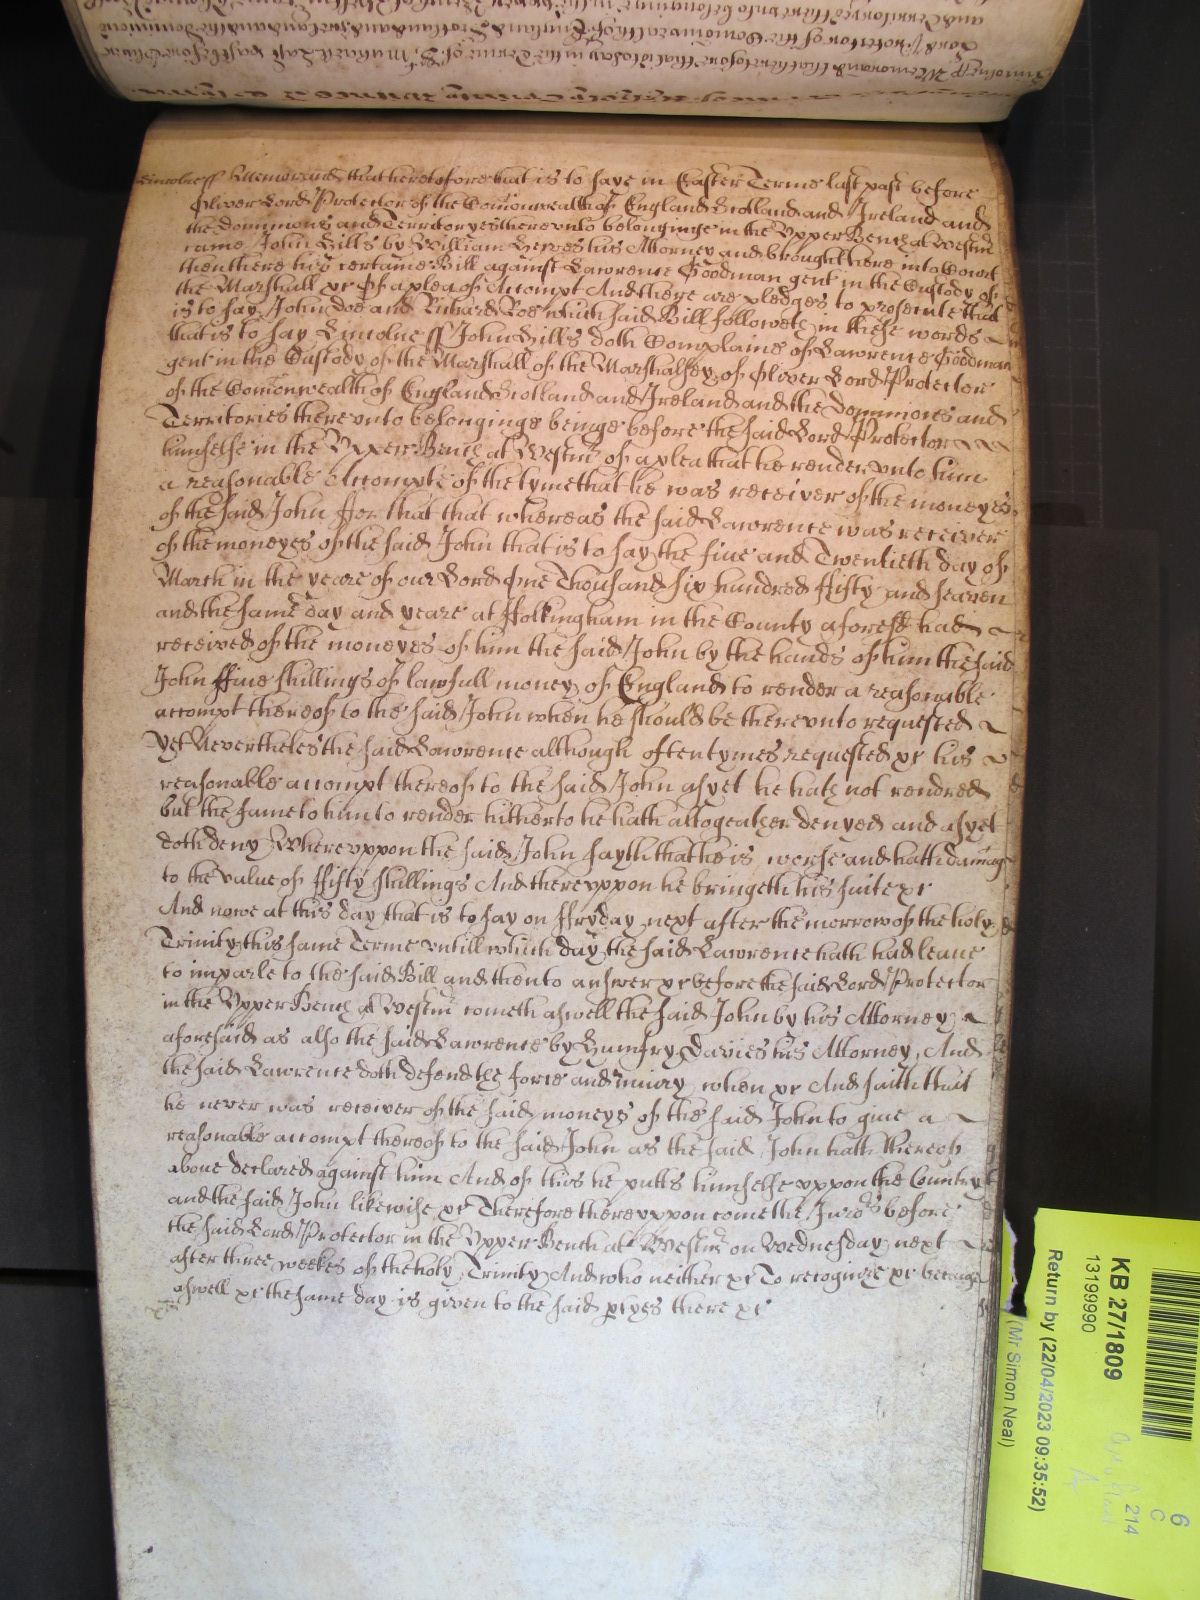 Lincolne ss Memorand that heretofore that is to saye in Easter Terme last past before
Oliver Lord Protector of the Comonwealth of England Scotland and Ireland and
the dominions and Territoryes thereunto belonginge in the Upper Bench at Westm
came John Hills by William his Attorney and brought here into Court
then there his certaine Bill against Lawrence Goodman gent in the Custody of
the Marshall &c Of a plea of Accompt And there are pledges to prosecute that
is to say John Doe and Richard Roe which said Bill followeth in these words
that is to say Lincolne ss John Hills doth Complaine of Lawrence Goodman
gent in the Custody of the Marshall of the Marshalsey of Oliver Lord Protector
of the Comonwealth of England Scotland and Ireland and the Dominions and
Territories thereunto belonginge beinge before the said Lord Protector
himselfe in the Upper Bench at Westm of a plea that he render unto him
a reasonable Accompte of the tyme that he was receiver of the moneyes
of the said John ffor that that whereas the said Lawrence was receiver
of the moneyes of the said John that is to say the five and Twentieth day of
March in the yeare of our Lord One Thousand six hundred ffifty and seaven
and the same day and yeare at ffolkingham in the County aforesd had
received of the moneyes of him the said John by the hands of him the said
John ffive shillings of lawfull money of England to render a reasonable
accompt thereof to the said John when he should be thereunto requested
Yet Neverthelés the said Lawrence although oftentymes requested &c his
reasonable accompt thereof to the said John as yet he hath not rendred
but the same to him to render hitherto he hath altogeather denyed and as yet
doth deny Whereuppon the said John sayth that he is worse and hath damag
to the value of ffifty shillings And thereuppon he bringeth his suite &c
And nowe at this day that is to say on ffryday next after the morrow of the holy
Trinity this same Terme untill which day the said Lawrence hath had leave
to imparle to the said Bill and then to answer &c before the said Lord Protector
in the Upper Bench at Westm cometh aswell the said John by his Attorney
aforesaid as also the said Lawrence by Humfry Davies his Attorney And
the said Lawrence doth defend the force and iniury when &c And saith that
he never was receiver of the said moneys of the said John to give a
reasonable accompt thereof to the said John as the said John hath thereof
above declared against him And of this he putts himselfe uppon the Country
and the said John likewise &c Therefore thereuppon come the Jurors before
the said Lord Protector in the Upper Bench at Westm on Wednesday next
after three weekes of the holy Trinity And who neither &c To recognize &c because
aswell &c the same day is given to the said ptyes there &c
KB 27/1809
13199990
Return by (22/04/2023 09:35:52)
(Mr Simon Neal)
6
C
214